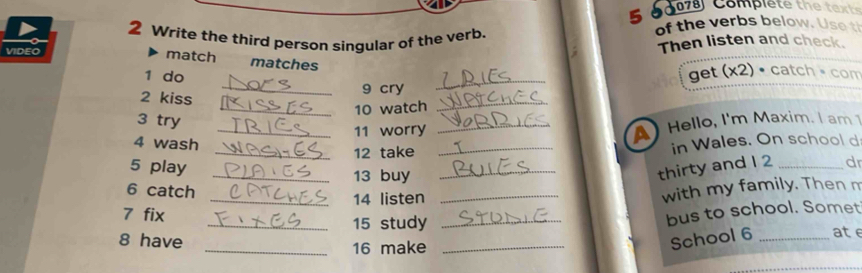 VIDEO
2 Write the third person singular of the verb.
▶ match matches
1 do DOES
2 kiss KISSES
3 try TRIES
4 wash WASHES
5 play PLAIES
6 catch CATCHES
7 fix FIXES
8 have
9 cry CRIES
10 watch WATCHES
11 worry WORRIES
12 take T
13 buy BUIES
14 listen
15 study STUDIE
16 make
5 078 Complete the texts
of the verbs below. Use
Then listen and check.
get (x2) • catch • com
A Hello, I'm Maxim. I am
in Wales. On school d
thirty and I 2 ________ dr
with my family. Then
bus to school. Somet
School 6 ________ at e